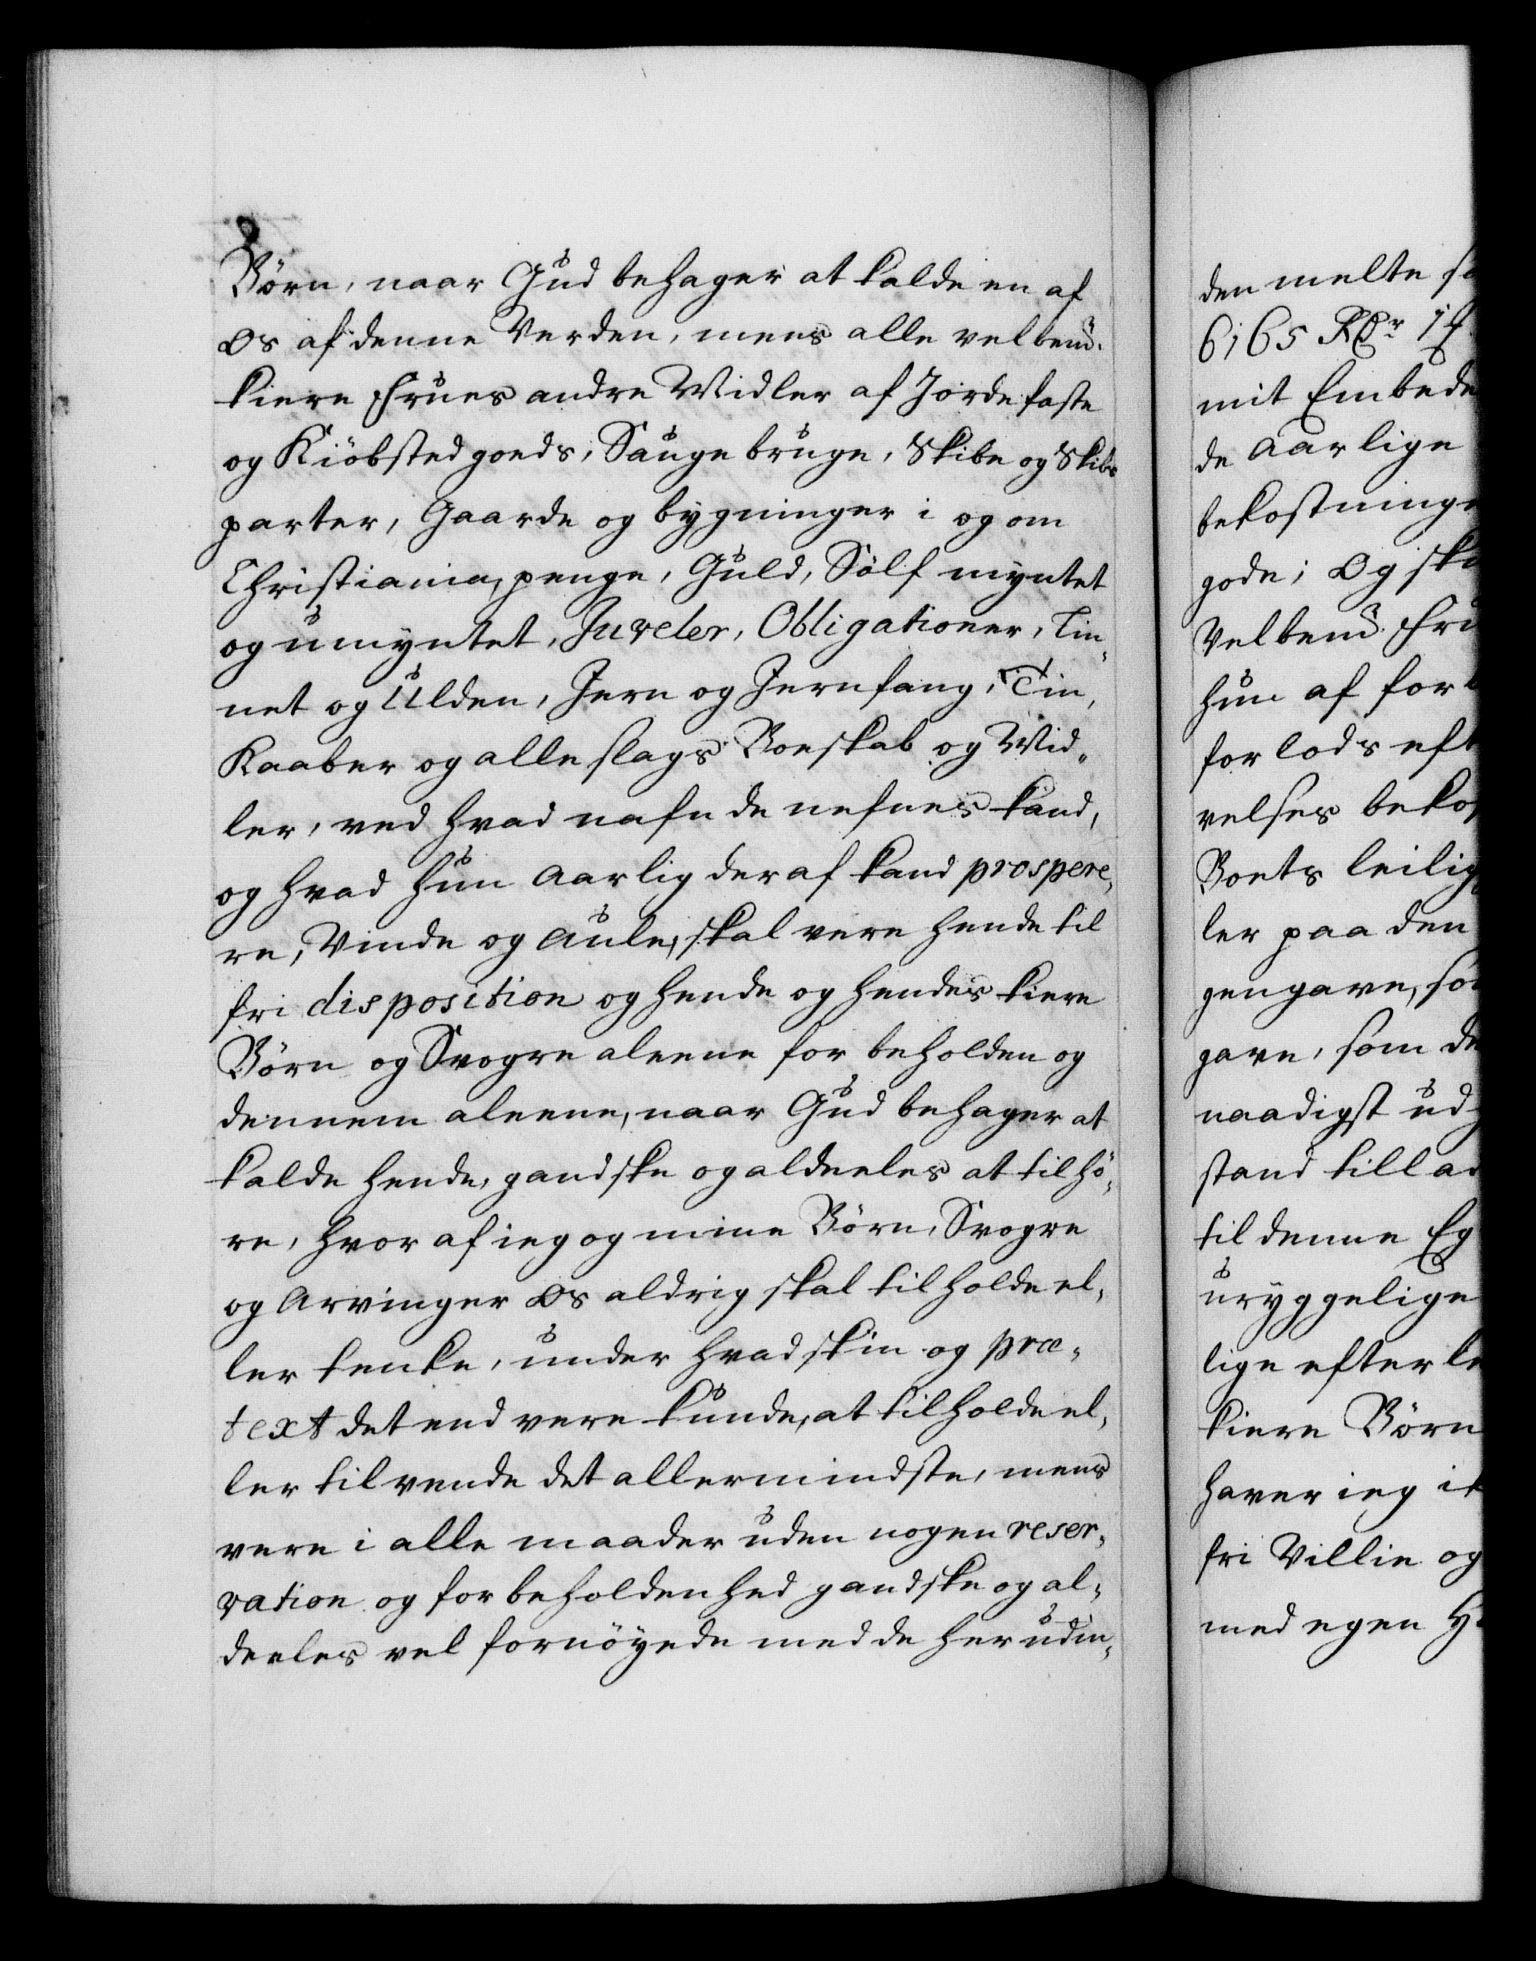 Börn, naar Gud behager at kalde en af
os af denne Verden, mens alle velbem.
kiere Frues andre Midler af Jordefaste
og Kiöbsted goeds, Sauge bruge, Skibe og Skibs
parter, Gaarde og bygninger i og om
Christiania, penge, Guld, Sölf myntet
og umyntet, Juveler, Obligationer, Lin-
net og Ulden, Jern og Jernfang, Tin,
Kaaber og alle slags Boeskab og Mid-
ler, ved hvad nafn de nefnes kand,
og hvad hun Aarlig der af kand prospere-
re, Vinde og Aule, skal vere hende til
fri disposition og hende og hendes kiere
Börn og Svogre aleene forbeholden og
dennem aleene, naar Gud behager at
kalde hende, gandske og aldeeles at tilhö-
re, hvor af ieg og mine Börn, Svogre
og Arvinger os aldrig skal tilholde el-
ler tenke, under hvad skin og præ-
text det end vere kunde, at tilholde el-
ler tilvende det allermindste, mens
vere i alle maader uden nogen reser-
vation og forbeholdenhed gandske og al-
deeles vel fornöyede med de herudin-
den melte
6165 RDr
mit Embede
de Aarlige
bekostninge
gode; Og
Velbem. Fru
hun af
for lods
velses
Boets
ler paa den
gengave,
gave, som
naadigst
stand
til denne
uryggelige
lige
kiere Börn
haver ieg
fri Villie og
med egen